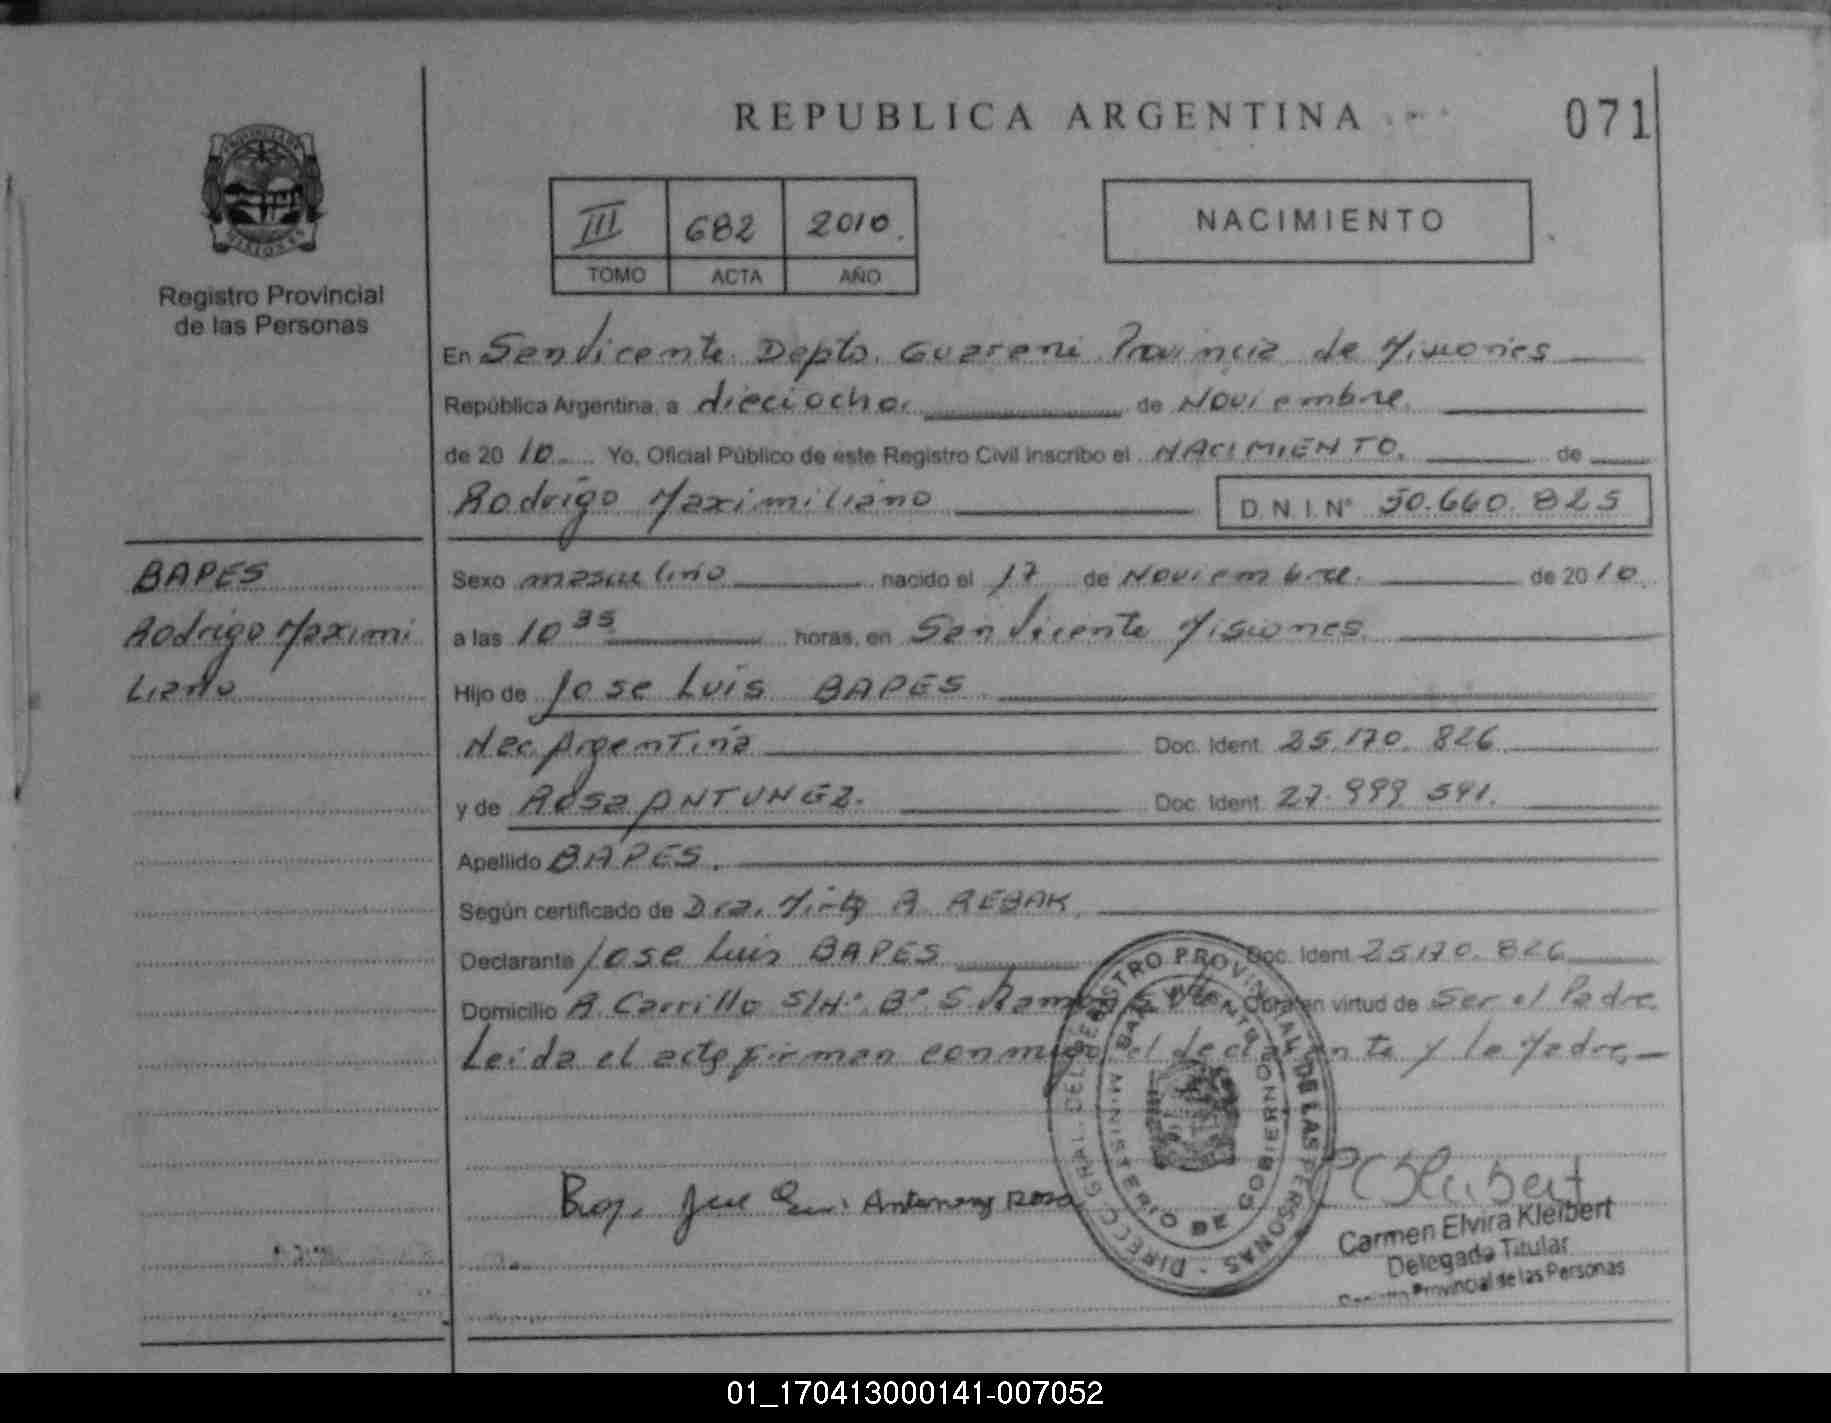 REPUBLICA ARGENTINA
071
PROVINCIA DE
MISIONES
Registro Provincial
de las Personas
III 682 2010.
TOMO ACTA AÑO
NACIMIENTO
En San Vicente Depto. Guarani Provincia de Misiones
República Argentina, a dieciocho. de Noviembre.
de 20 10. Yo, Oficial Público de este Registro Civil inscribo el NACIMIENTO. de
Rodrigo Maximiliano D.N.I.Nº 50.660.825
BAPES
Rodrigo Maximi
Liano
Sexo masculino nacido el 17 de Noviembre. de 20 10.
a las 10 35 horas, en San Vicente Misiones
Hijo de Jose Luis BAPES
Nac. Argentina Doc. Ident. 25.170.826
y de Rosa ANTUNEZ. Doc. Ident. 27.999.541.
Apellido BAPES.
Según certificado de Dra. Mirta A. REBAK
Declarante Jose Luis BAPES Doc. Ident. 25170.826
Domicilio R. Carrillo S/Nº. Bº. S. Ramon en virtud de Ser el Padre
Leida el acta firman conmigo el declarante y la Madre,—
Jose Antunez Rosa
DIRECC. GRAL. DEL REGISTRO PROVINCIAL DE LAS PERSONAS
MINISTERIO DE GOBIERNO
SAN VICENTE
Carmen Elvira Kleibert
Delegada Titular
Registro Provincial de las Personas
01_170413000141-007052